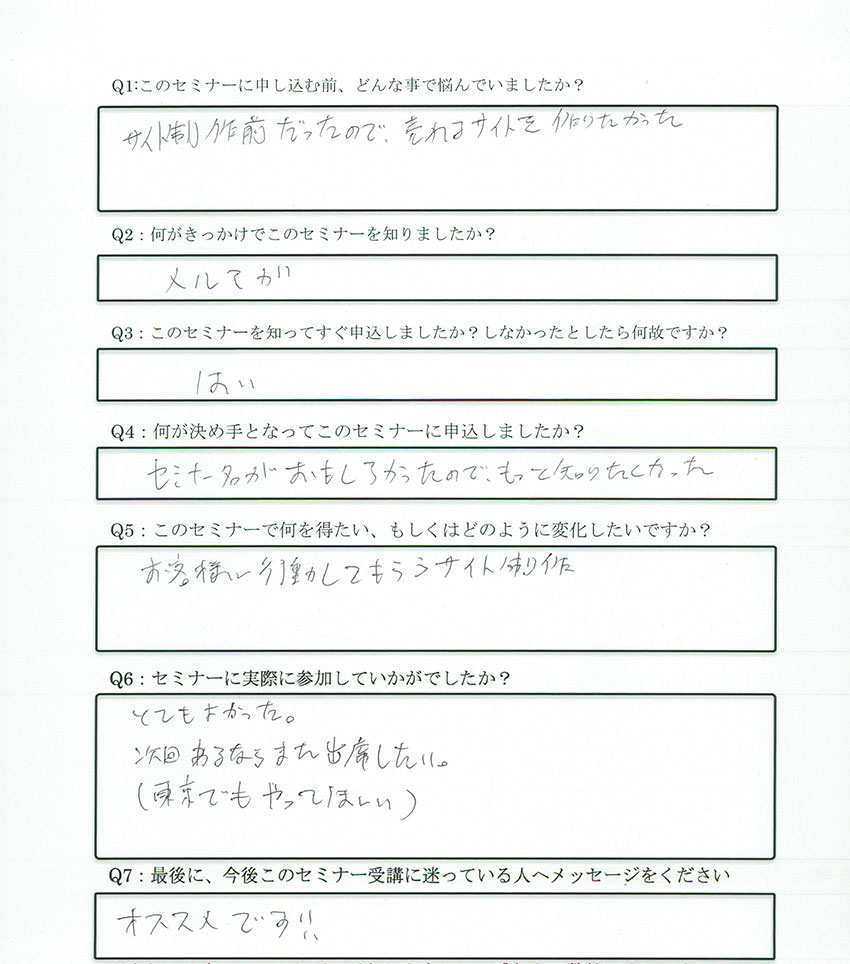 Q1:このセミナーに申し込む前、どんな事で悩んでいましたか？
サイト制作前だったので、売れるサイトを作りたかった
Q2：何がきっかけでこのセミナーを知りましたか？
メルマガ
Q3：このセミナーを知ってすぐ申込しましたか？しなかったとしたら何故ですか？
はい
Q4：何が決め手となってこのセミナーに申込しましたか？
セミナー名がおもしろかったので、もっと知りたくなった
Q5：このセミナーで何を得たい、もしくはどのように変化したいですか？
お客様に行動してもらうサイト制作
Q6：セミナーに実際に参加していかがでしたか？
とてもよかった。
次回あるならまた出席したい。
（東京でもやってほしい）
Q7：最後に、今後このセミナー受講に迷っている人へメッセージをください
オススメです!!